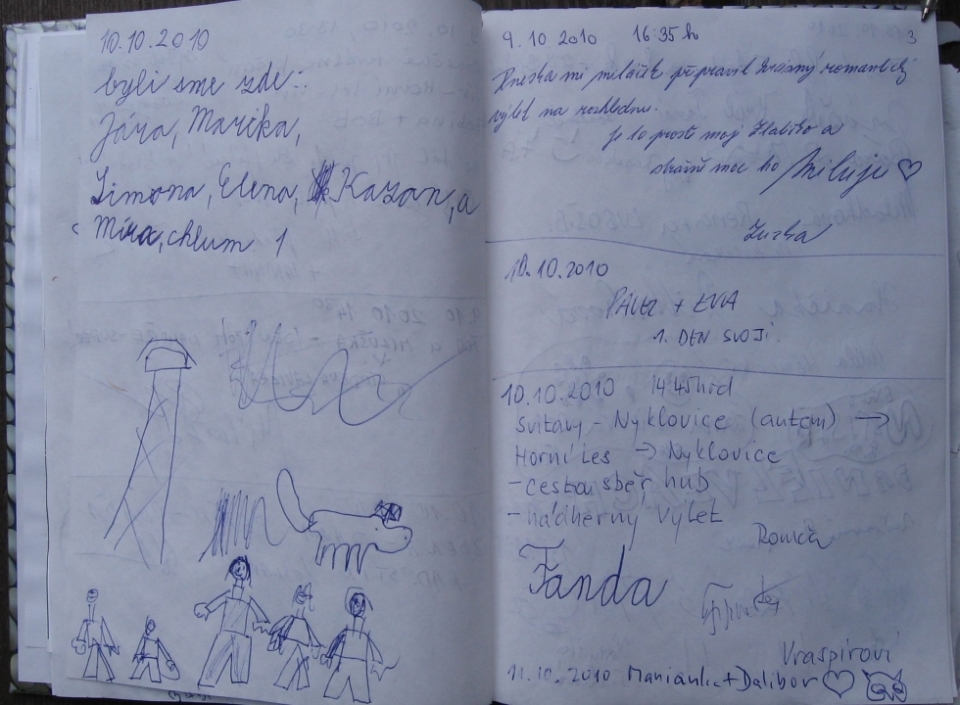 10.10.2010
byli sme zde:
Jára, Marika,
Simona, Elena, Kazan, a
Míra, chlum 1
9.10 2010 16:35 h
3
Dneska mi miláček připravil krásný romantický
výlet na rozhlednu.
Je to prostě moje zlatíčko a
strašně moc ho Miluji ♡
Zuzka
10.10.2010
PAVEL + EVA
1. DEN SVOJI
10.10.2010 14.45 hod
Svitavy - Nyklovice (autem) →
Horní Les → Nyklovice
- cestou sběr hub
- nádherný výlet
Romča
Fanda
Vraspírovi
11.10.2010 + Dalibor ♡